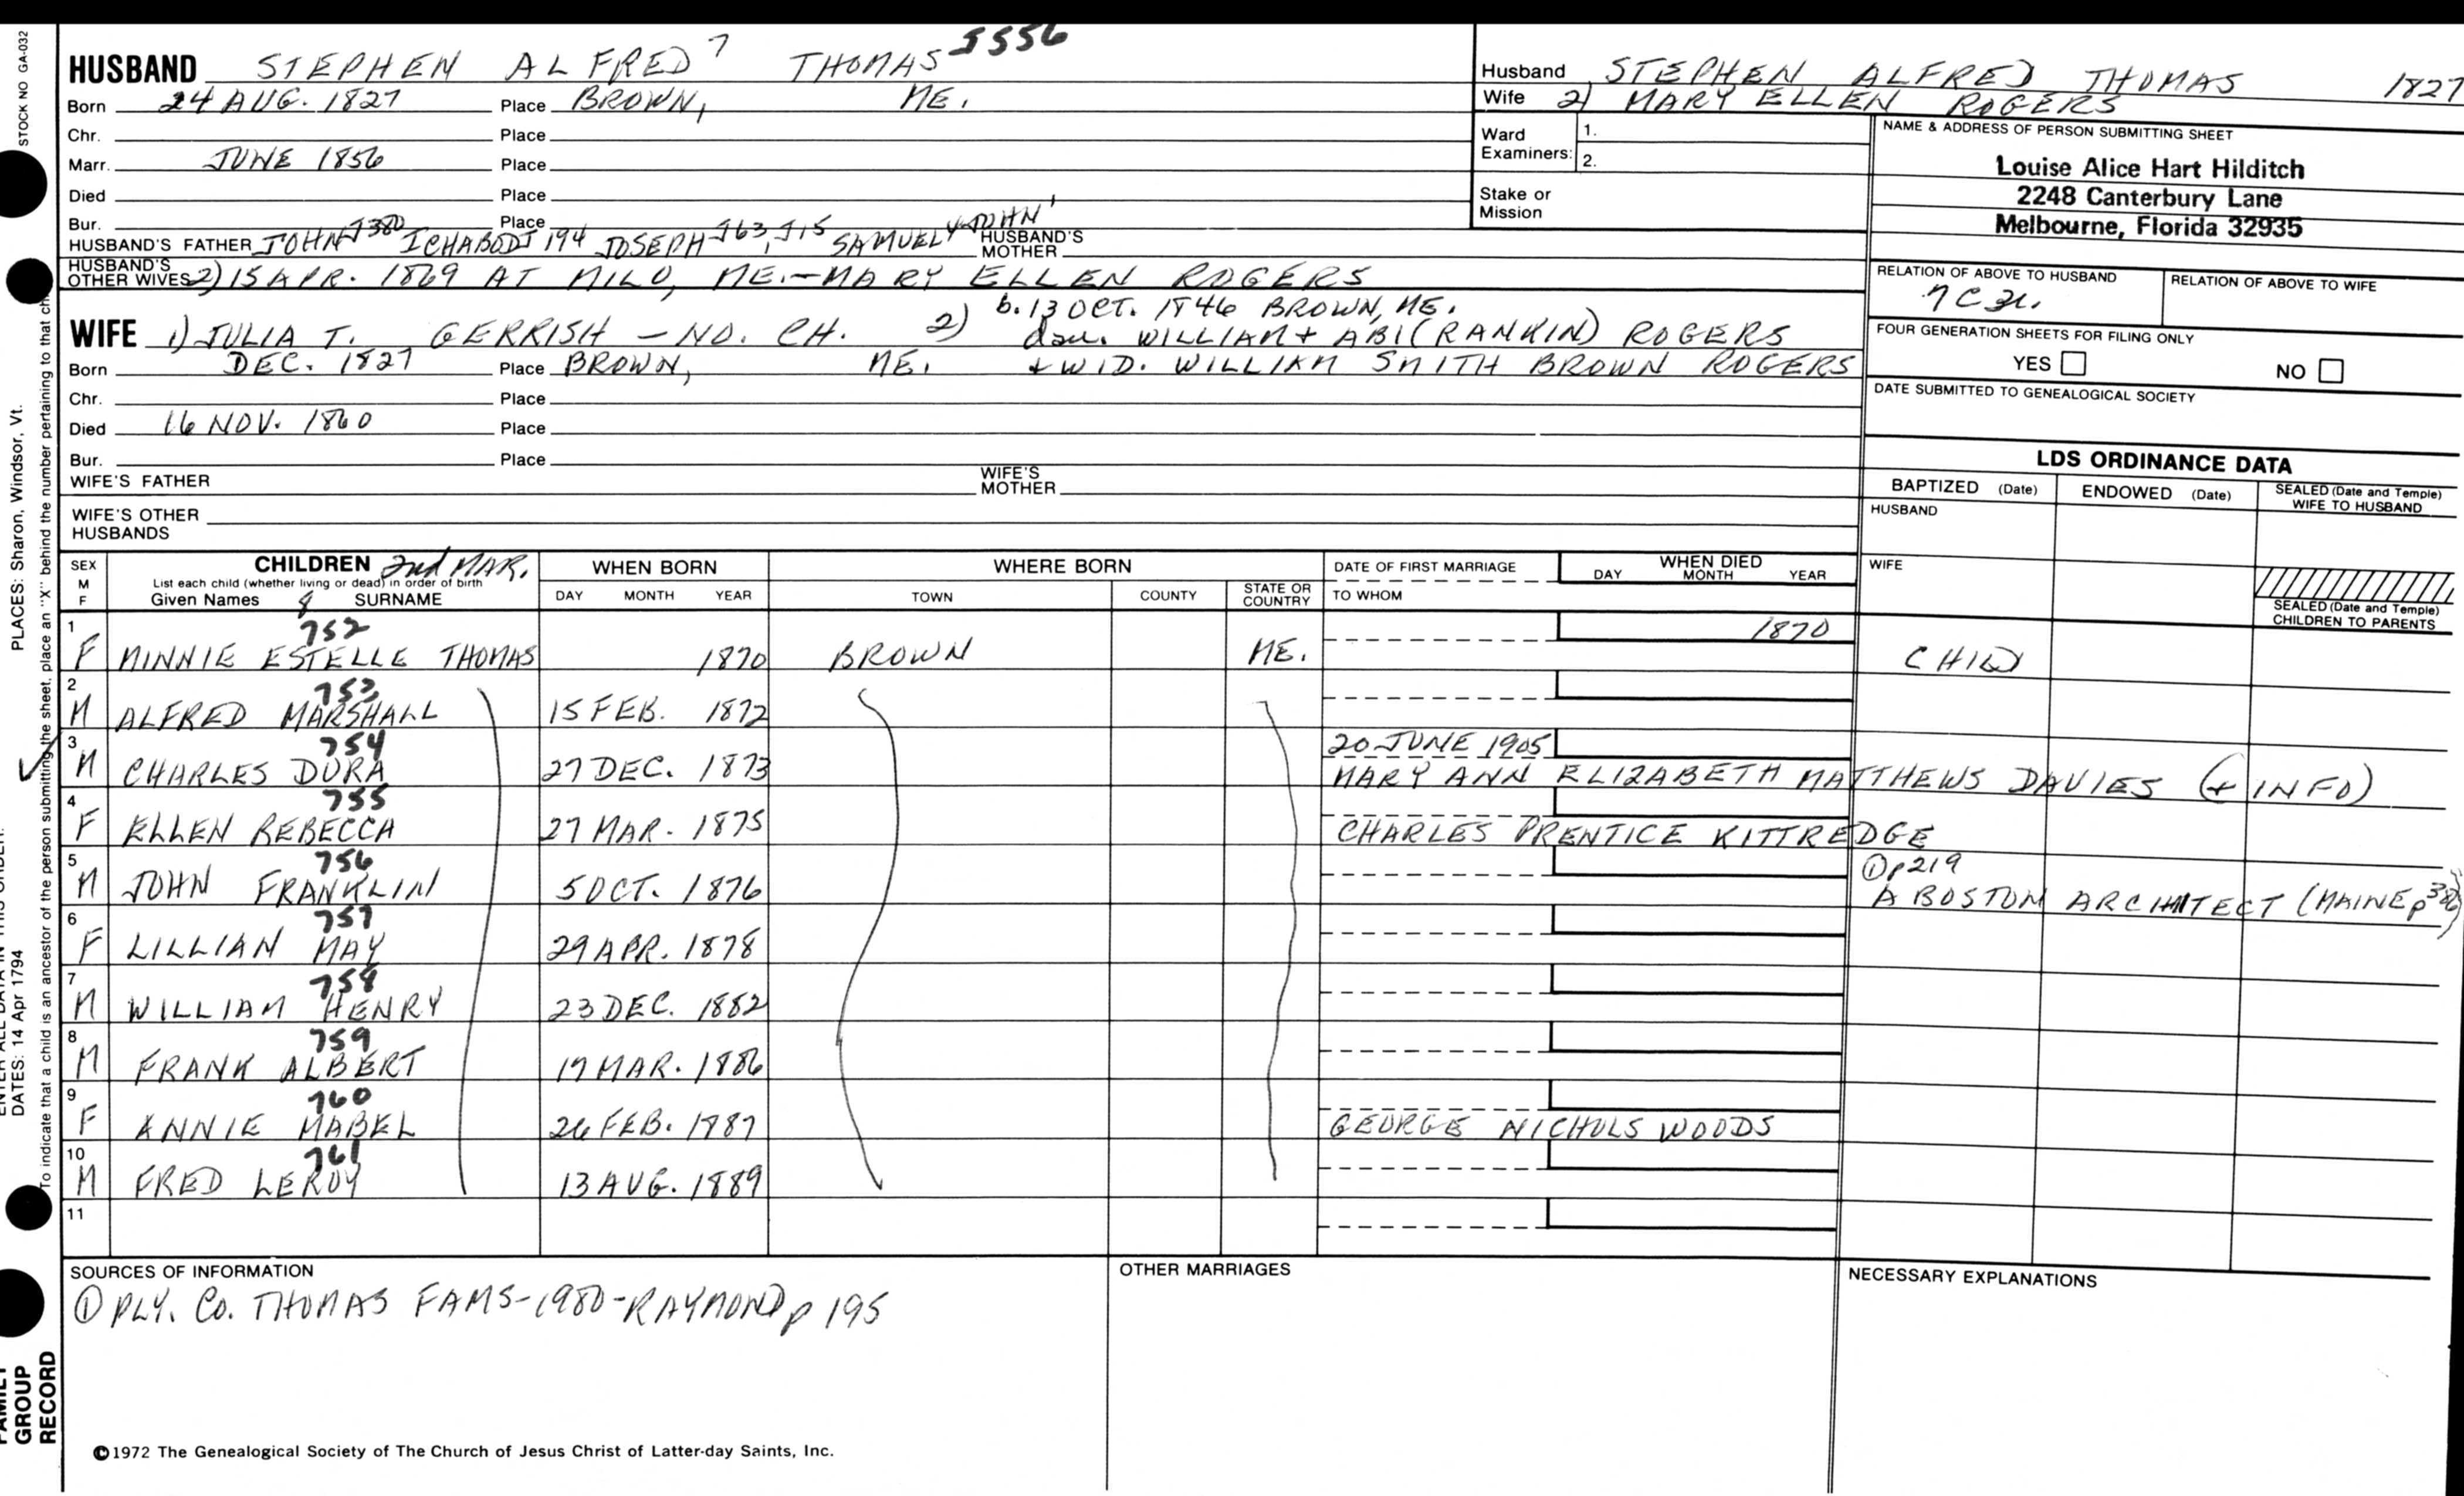 HUSBAND STEPHEN ALFRED 7 THOMAS J556
Born 24 AUG. 1827 Place BROWN, ME.
Chr. Place
Marr. JUNE 1856 Place
Died Place
Bur. Place
HUSBAND'S FATHER JOHN J380 ICHABOD J194 JOSEPH J63, J15 SAMUEL 4 JOHN 1 HUSBAND'S MOTHER
HUSBAND'S OTHER WIVES 2) 15 APR. 1869 AT MILO, ME.-MARY ELLEN ROGERS
b. 13 OCT. 1846 BROWN, ME.
WIFE 1) JULIA T. GERRISH - NO. CH. 2) dau. WILLIAM + ABI (RANKIN) ROGERS
Born DEC. 1827 Place BROWN, ME. + WID. WILLIAM SMITH BROWN ROGERS
Chr. Place
Died 16 NOV. 1860 Place
Bur. Place
WIFE'S FATHER WIFE'S MOTHER
WIFE'S OTHER HUSBANDS
Husband STEPHEN ALFRED THOMAS 1827
Wife 2) MARY ELLEN ROGERS
Ward Examiners: 1.
2.
Stake or Mission
NAME & ADDRESS OF PERSON SUBMITTING SHEET
Louise Alice Hart Hilditch
2248 Canterbury Lane
Melbourne, Florida 32935
RELATION OF ABOVE TO HUSBAND RELATION OF ABOVE TO WIFE
FOUR GENERATION SHEETS FOR FILING ONLY
YES NO
DATE SUBMITTED TO GENEALOGICAL SOCIETY
LDS ORDINANCE DATA
BAPTIZED (Date) ENDOWED (Date) SEALED (Date and Temple) WIFE TO HUSBAND
HUSBAND
WIFE
SEALED (Date and Temple) CHILDREN TO PARENTS
SEX M F CHILDREN 2nd MAR. WHEN BORN WHERE BORN DATE OF FIRST MARRIAGE WHEN DIED
List each child (whether living or dead) in order of birth
Given Names 8 SURNAME DAY MONTH YEAR TOWN COUNTY STATE OR COUNTRY TO WHOM DAY MONTH YEAR
1 752 1870
F MINNIE ESTELLE THOMAS 1870 BROWN ME. CHILD
2 753
M ALFRED MARSHALL 15 FEB. 1872
3 754 20 JUNE 1905
M CHARLES DURA 27 DEC. 1873 MARY ANN ELIZABETH MATTHEWS DAVIES (+ INFO)
4 755
F ELLEN REBECCA 27 MAR. 1875 CHARLES PRENTICE KITTREDGE
5 756 ① p219
M JOHN FRANKLIN 5 OCT. 1876 A BOSTON ARCHITECT (MAINE p
6 757
F LILLIAN MAY 29 APR. 1878
7 758
M WILLIAM HENRY 23 DEC. 1882
8 759
M FRANK ALBERT 19 MAR. 1886
9 760
F ANNIE MABEL 26 FEB. 1887 GEORGE NICHOLS WOODS
10 761
M FRED LEROY 13 AUG. 1889
11
SOURCES OF INFORMATION OTHER MARRIAGES NECESSARY EXPLANATIONS
① PLY. Co. THOMAS FAMS-1980-RAYMOND p 195
©1972 The Genealogical Society of The Church of Jesus Christ of Latter-day Saints, Inc.
STOCK NO GA-032
PLACES: Sharon, Windsor, Vt.
ENTER ALL DATA IN THIS ORDER:
DATES: 14 Apr 1794
To indicate that a child is an ancestor of the person submitting the sheet, place an "X" behind the number pertaining to that ch
FAMILY GROUP RECORD